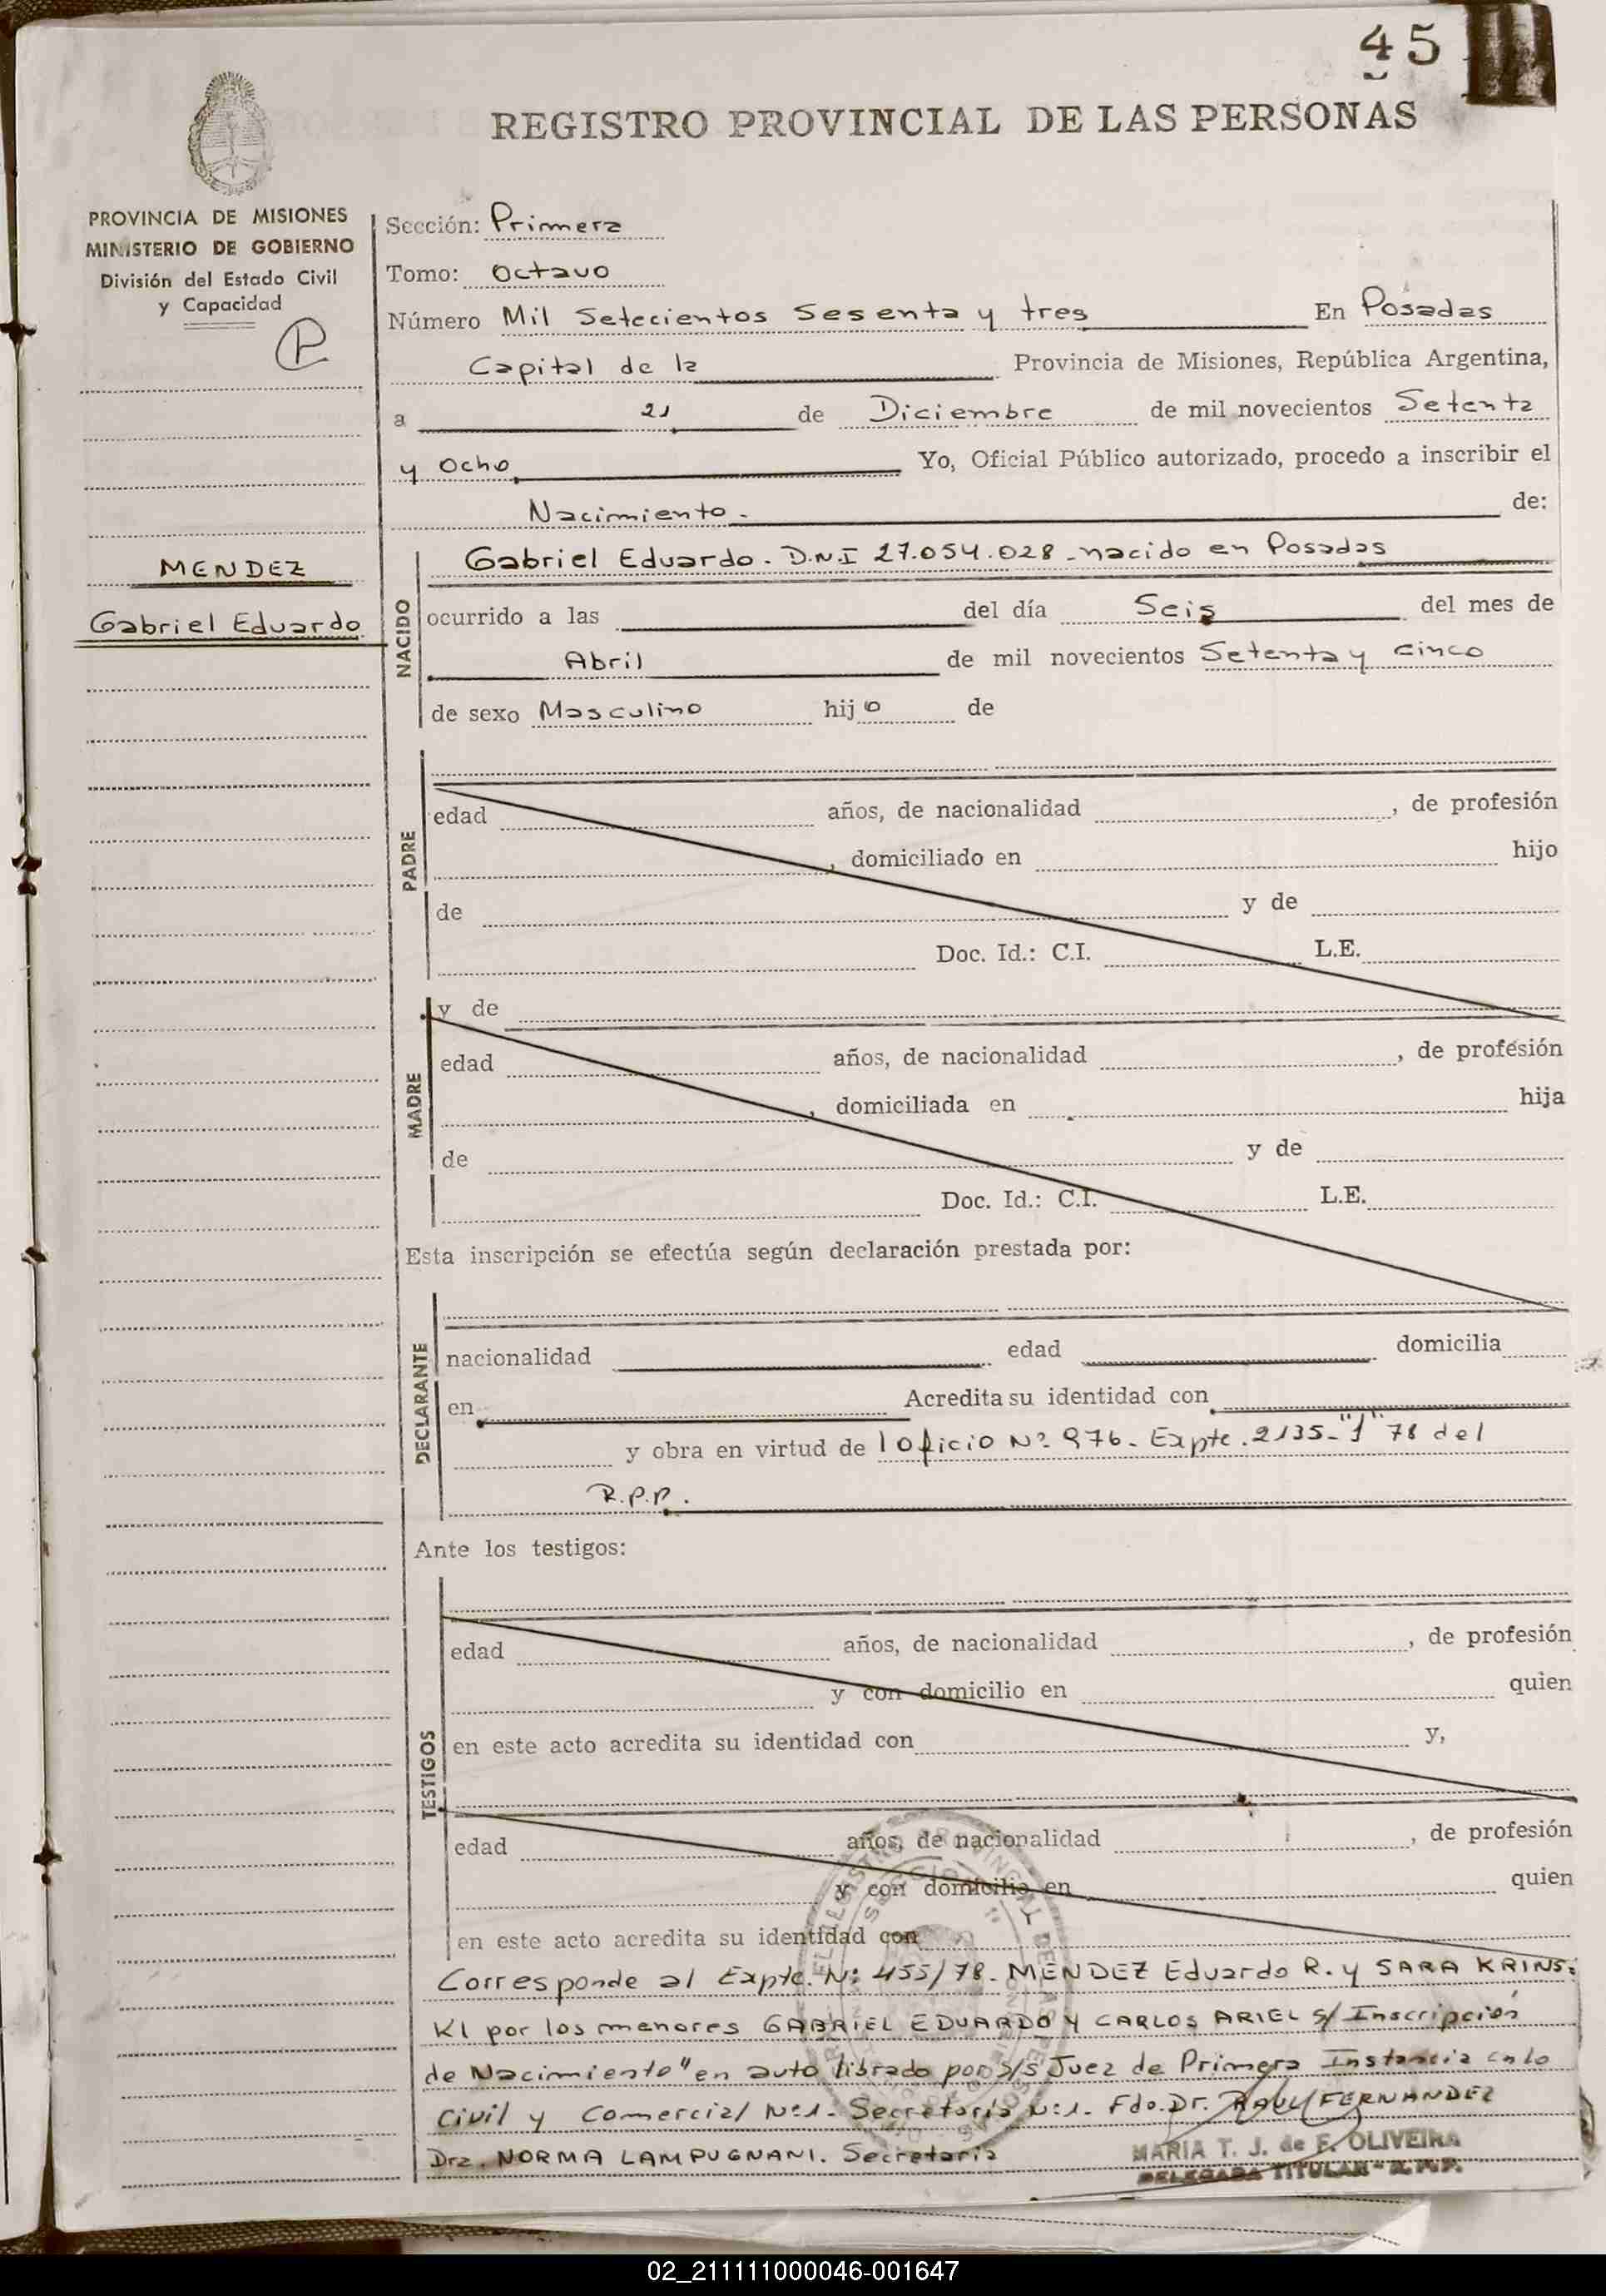 45
REGISTRO PROVINCIAL DE LAS PERSONAS
PROVINCIA DE MISIONES
MINISTERIO DE GOBIERNO
División del Estado Civil
y Capacidad
P
MENDEZ
Gabriel Eduardo
Sección: Primera
Tomo: Octavo
Número Mil Setecientos Sesenta y tres En Posadas
Capital de la Provincia de Misiones, República Argentina,
a 21 de Diciembre de mil novecientos Setenta
y Ocho Yo, Oficial Público autorizado, procedo a inscribir el
Nacimiento. de:
NACIDO
Gabriel Eduardo. D.N.I 27.054.028 - nacido en Posadas
ocurrido a las del día Seis del mes de
Abril de mil novecientos Setenta y cinco
de sexo Masculino hijo de
PADRE
edad años, de nacionalidad , de profesión
, domiciliado en hijo
de y de
Doc. Id.: C.I. L.E.
MADRE
y de
edad años, de nacionalidad , de profesión
, domiciliada en hija
de y de
Doc. Id.: C.I. L.E.
Esta inscripción se efectúa según declaración prestada por:
DECLARANTE
nacionalidad edad domicilia
en Acredita su identidad con
y obra en virtud de Oficio Nº 976 - Expte. 2135- 78 del
R.P.P.
Ante los testigos:
TESTIGOS
edad años, de nacionalidad , de profesión
y con domicilio en quien
en este acto acredita su identidad con y,
edad años, de nacionalidad , de profesión
y con domicilio en quien
en este acto acredita su identidad con
Corresponde al Expte. Nº 455/78. MENDEZ Eduardo R. y SARA KRINS:
KI por los menores GABRIEL EDUARDO Y CARLOS ARIEL S/ Inscripción
de Nacimiento" en auto librado por s/s Juez de Primera Instancia en lo
Civil y Comercial Nº1. Secretaría Nº1. Fdo. Dr. RAUL FERNANDEZ
Dra. NORMA LAMPUGNANI. Secretaria
MARIA T. J. de F. OLIVEIRA
DELEGADA TITULAR - R.P.P.
02_211111000046-001647